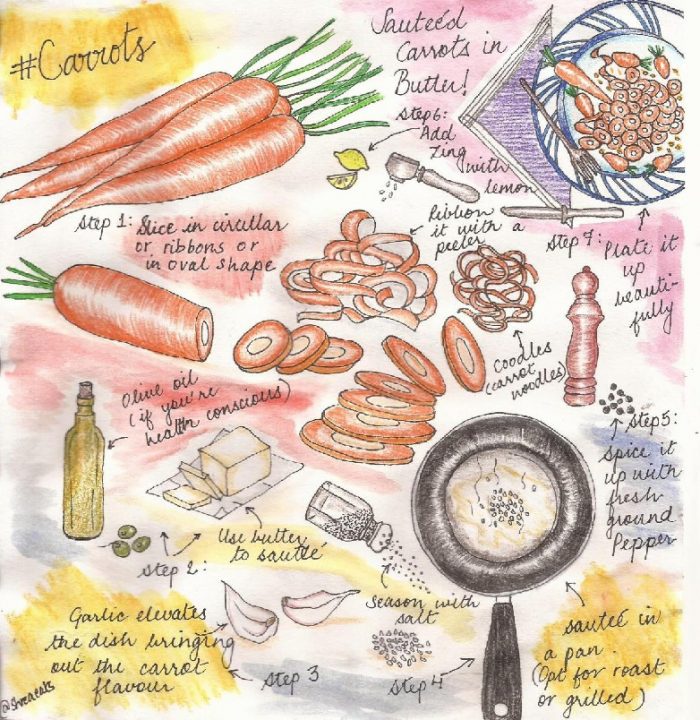 #Carrots
Sauteé'd
Carrots in
Butter!
Step 6:
Add
Zing
with
lemon
Step 1: Slice in circular
or ribbons or
in oval shape
Ribbon
it with a
peeler
Step 7: Plate it
up
beauti-
fully
Coodles
(carrot
noodles)
Olive oil
(if you're
health conscious)
Step 5:
Spice it
up with
fresh
ground
Pepper
Use butter
to sauteé
Step 2:
Season with
salt
Garlic elevates
the dish bringing
out the carrot
flavour
Step 3
Step 4
sauteé in
a pan.
(Opt for roast
or grilled)